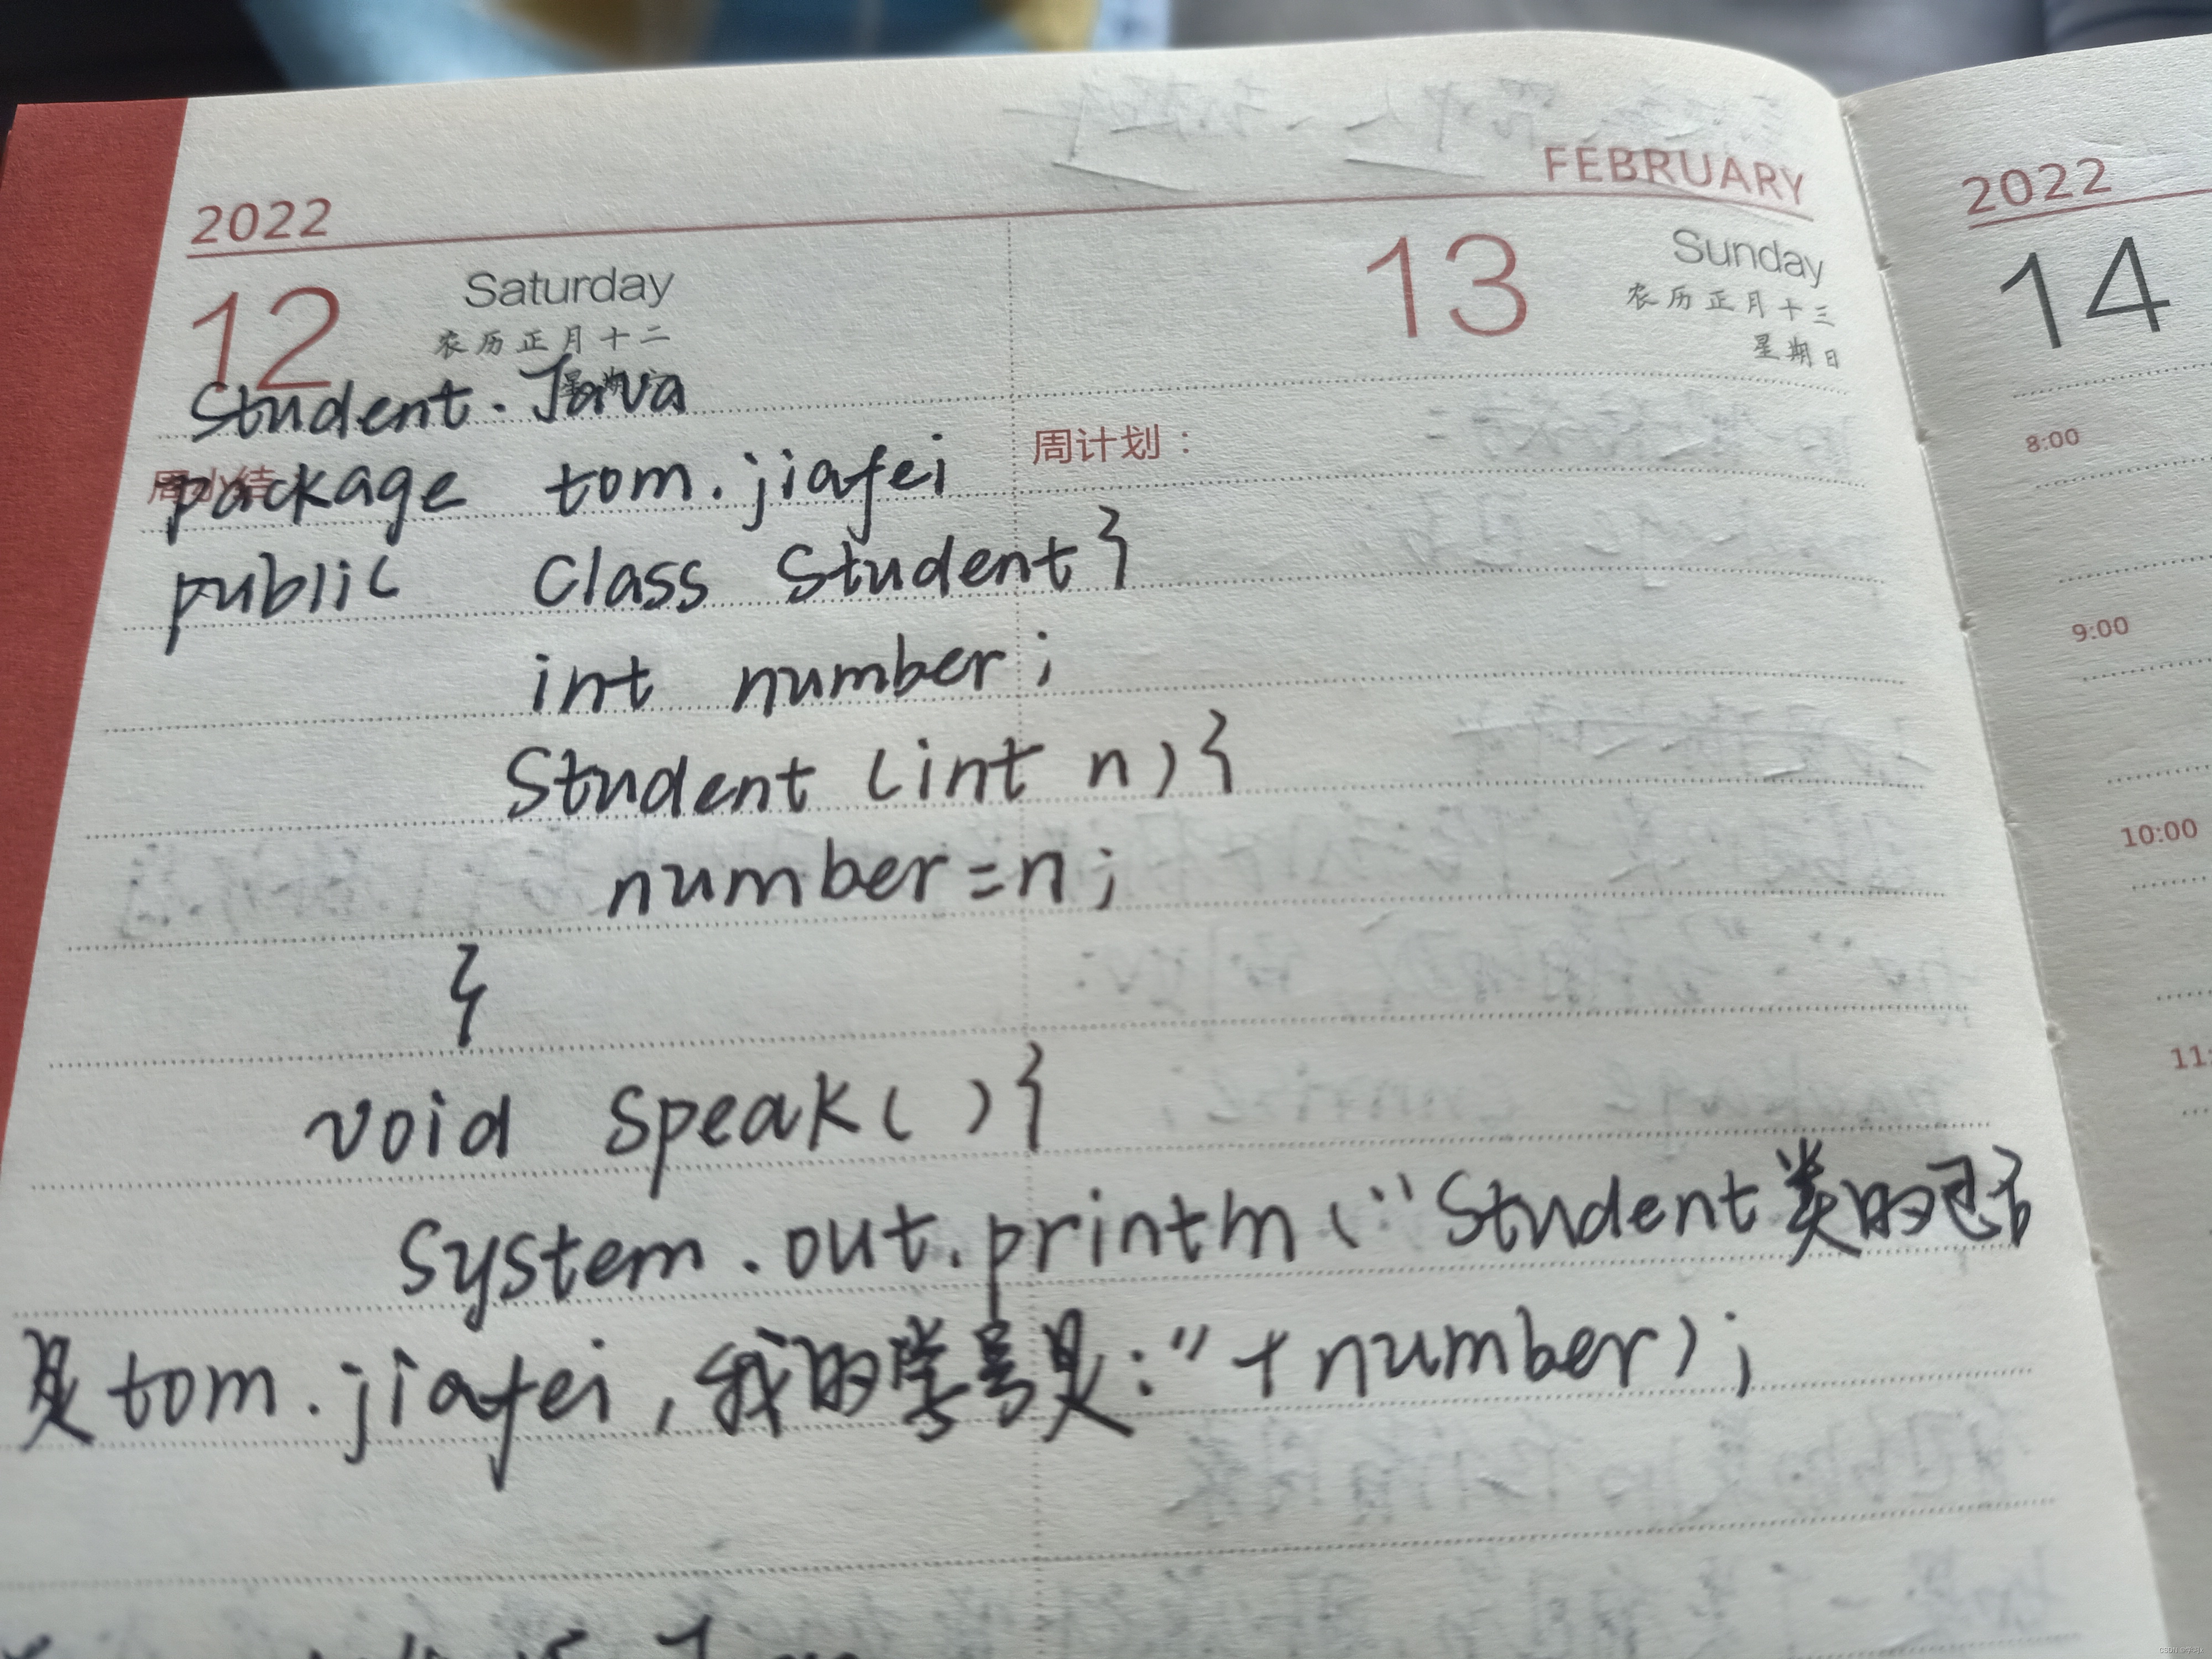 2022
FEBRUARY
12
Saturday
农历正月十二
13
Sunday
农历正月十三
星期日
2022
14
Student.Java
周小结
package tom.jiafei
周计划：
8:00
public Class Student{
int number;
9:00
Student (int n){
10:00
number=n;
}
11:
void speak( ){
System.out.println("Student类的包名
是tom.jiafei,我的学号是:"+number);